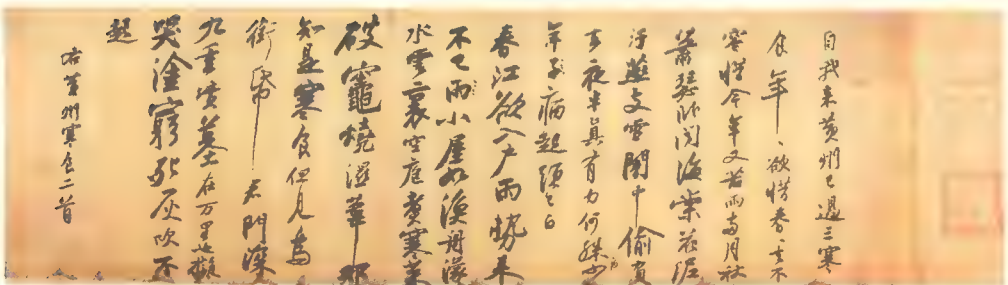 自我来黄州已過三寒
食年〻欲惜春〻去不
容惜今年又苦雨兩月秋
蕭瑟卧聞海棠花泥
汙燕支雪闇中偷負
去夜半真有力何殊少
年子病起頭已白
春江欲入戶雨勢来
不已雨小屋如漁舟濛
水雲裏空庖煑寒菜
破竈燒濕葦那
知是寒食但見烏
銜帋君門深
九重墳墓在万里也擬
哭塗窮死灰吹不
起
右黄州寒食二首